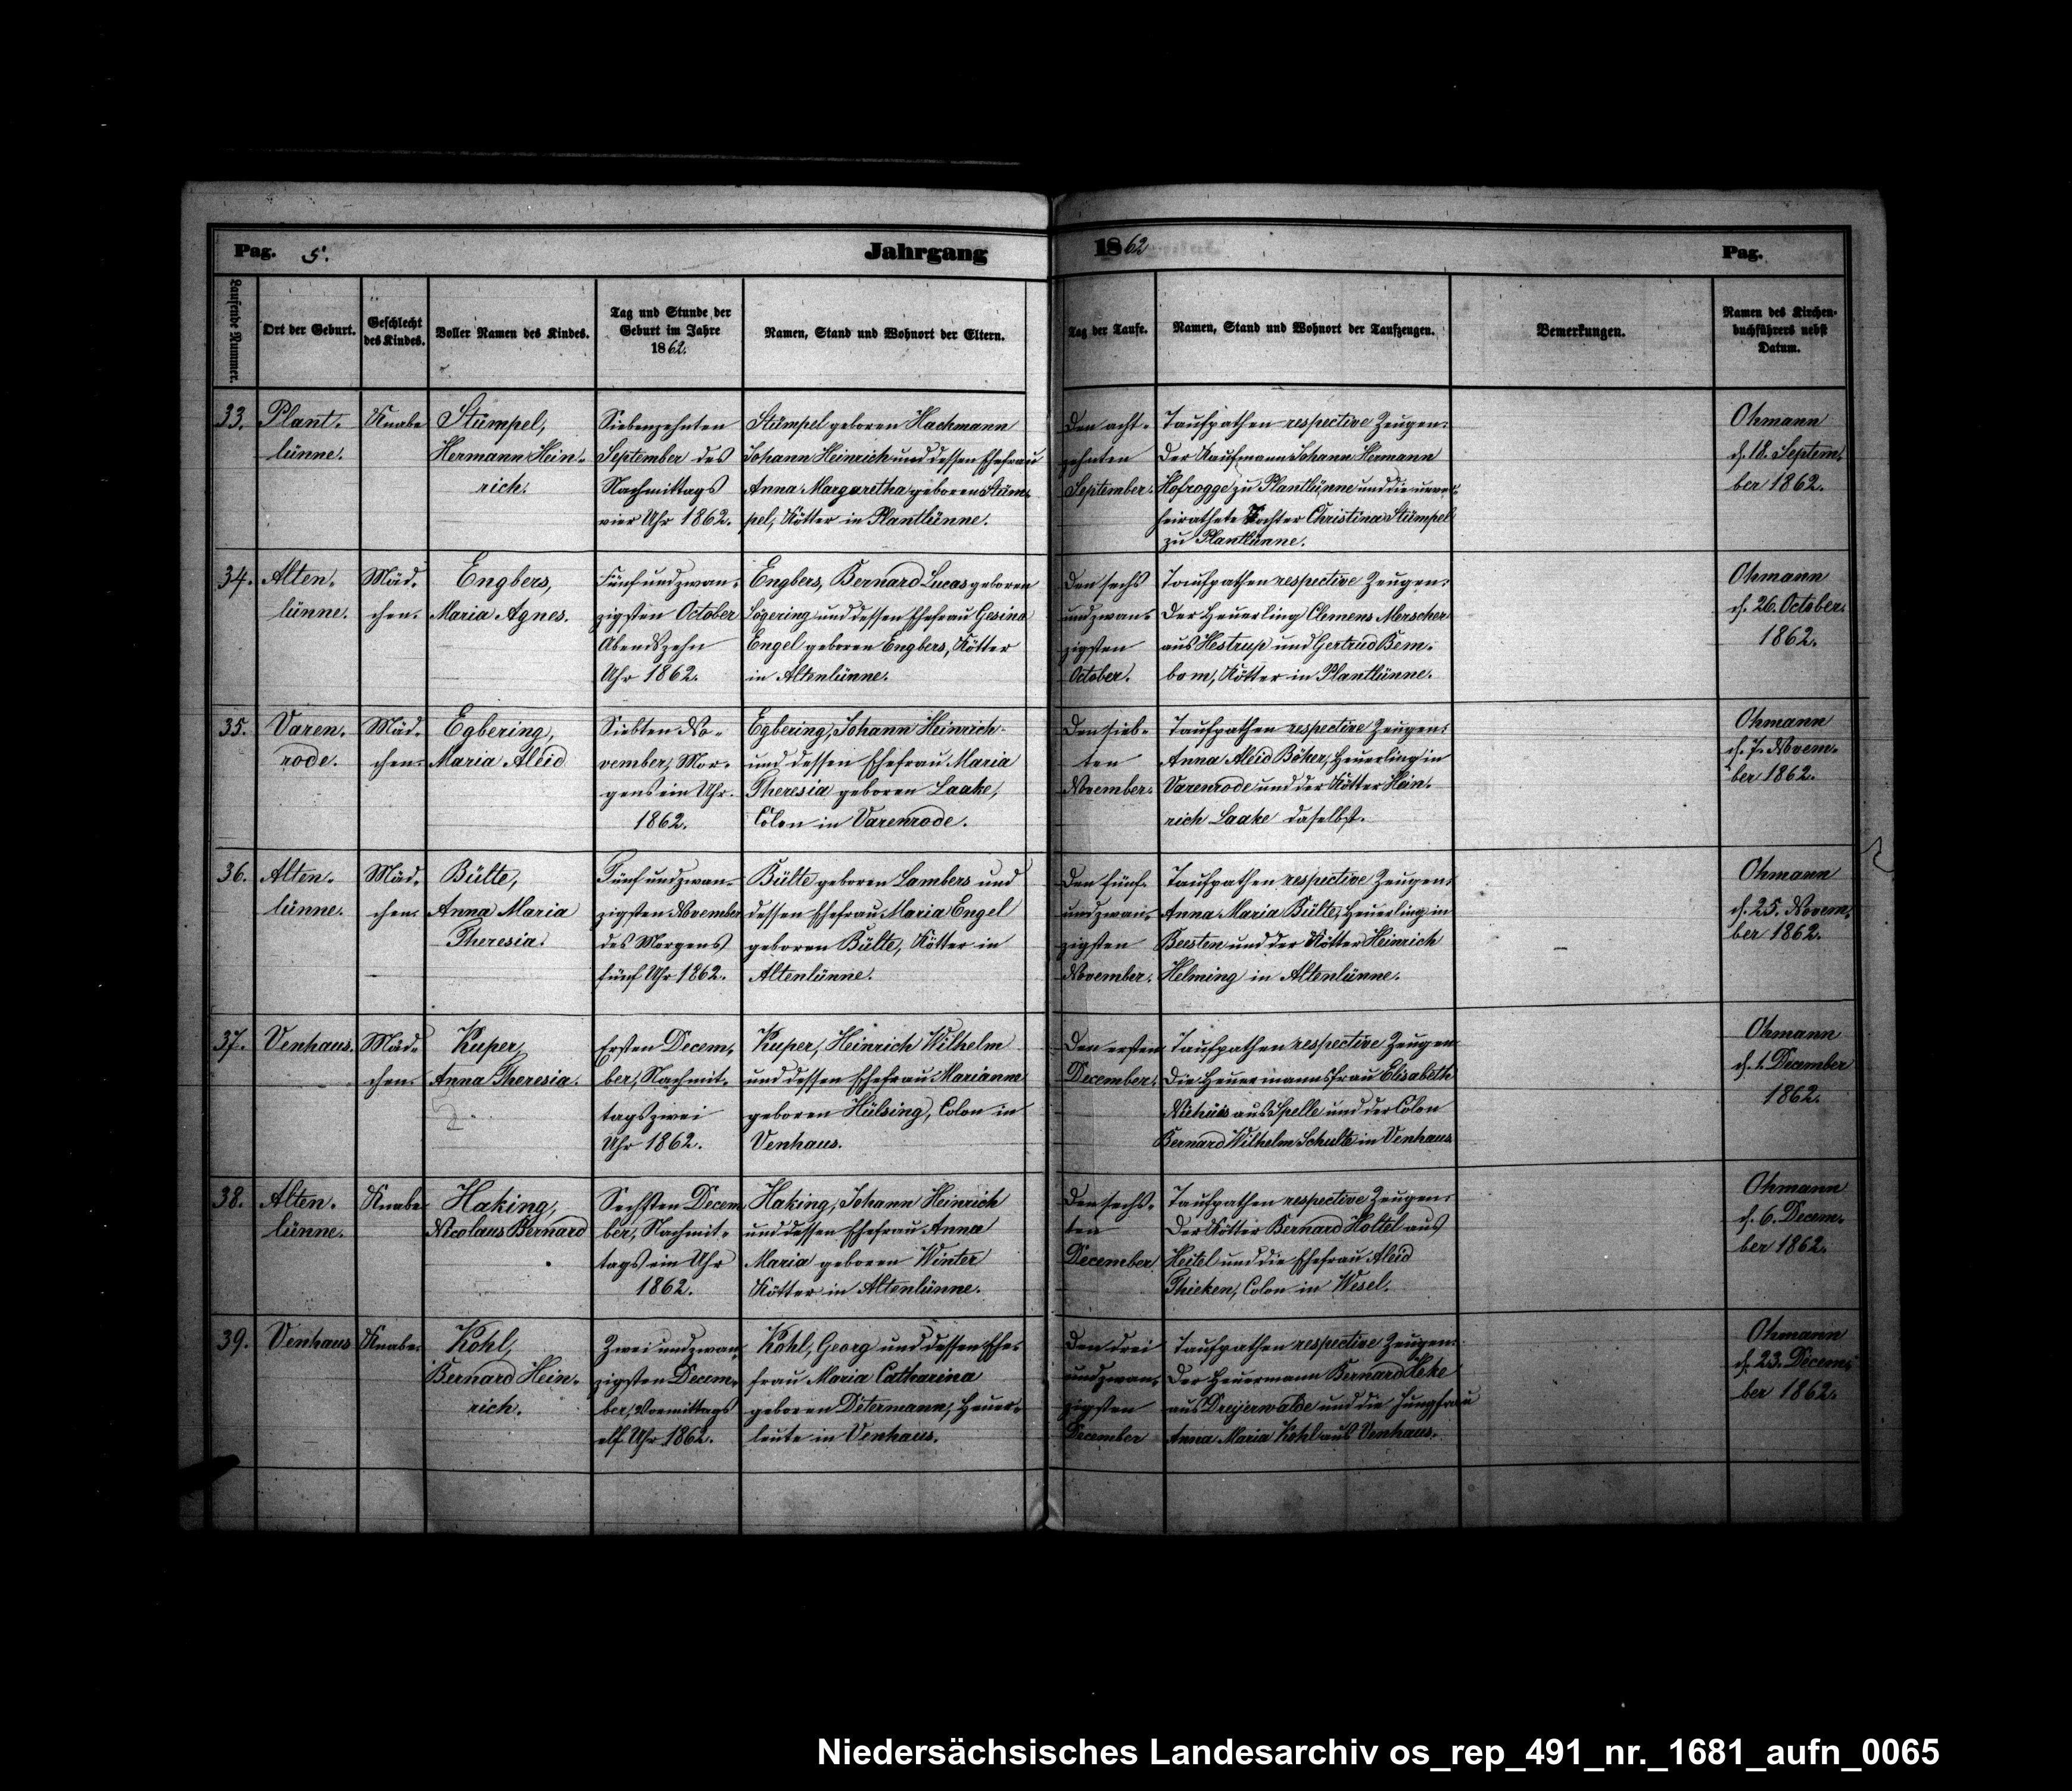 Pag. 5.
Jahrgang
1862
Pag.
Laufende Nummer.
Ort der Geburt.
Geschlecht
des Kindes.
Voller Namen des Kindes.
Tag und Stunde der
Geburt im Jahre
1862.
Namen, Stand und Wohnort der Eltern.
Tag der Taufe.
Namen, Stand und Wohnort der Taufzeugen.
Bemerkungen.
Namen des Kirchen-
buchführers nebst
Datum.
33.
Plant-
lünne.
Knabe
Stümpel,
Hermann Hein-
rich.
Siebenzehnten
September des
Nachmittags
vier Uhr 1862.
Stümpel geboren Hachmann
Johann Heinrich und dessen Ehefrau
Anna Margaretha geboren Stüm-
pel, Kötter in Plantlünne.
Den acht-
zehnten
September.
Taufpathen respective Zeugen:
Der Kaufmann Johann Hermann
Hofrogge zu Plantlünne und die unver-
heirathete Tochter Christina Stümpel
zu Plantlünne.
Ohmann
d. 18. Septem-
ber 1862.
34.
Alten-
lünne.
Mäd-
chen.
Engbers,
Maria Agnes.
Fünfundzwan-
zigsten October
Abends zehn
Uhr 1862.
Engbers, Bernard Lucas geboren
Lögering und dessen Ehefrau Gesina
Engel geboren Engbers, Kötter
in Altenlünne.
Den sechs
undzwan-
zigsten
October.
Taufpathen respective Zeugen:
Der Heuerling Clemens Merscher
aus Hestrup und Gertrud Bem-
bom, Kötter in Plantlünne.
Ohmann
d. 26. October
1862.
35.
Varen-
rode.
Mäd-
chen.
Egbering,
Maria Aleid
Siebten No-
vember, Mor-
gens ein Uhr.
1862.
Egbering, Johann Heinrich
und dessen Ehefrau Maria
Theresia geboren Laake,
Colon in Varenrode.
Den sieb-
ten
November.
Taufpathen respective Zeugen:
Anna Aleid Böker, Heuerling in
Varenrode und der Kötter Hein-
rich Laake daselbst.
Ohmann
d. 7. Novem-
ber 1862.
36.
Alten-
lünne.
Mäd-
chen.
Bülte,
Anna Maria
Theresia.
Fünfundzwan-
zigsten November
des Morgens
fünf Uhr 1862.
Bülte geboren Lambers und
dessen Ehefrau Maria Engel
geboren Bülte, Kötter in
Altenlünne.
Den fünf-
undzwan-
zigsten
November.
Taufpathen respective Zeugen:
Anna Maria Bülte, Heuerling in
Beesten und der Kötter Heinrich
Helming in Altenlünne.
Ohmann
d. 25. Novem-
ber 1862.
37.
Venhaus.
Mäd-
chen.
Kuper,
Anna Theresia.
Ersten Decem-
ber, Nachmit-
tags zwei
Uhr 1862.
Kuper, Heinrich Wilhelm
und dessen Ehefrau Marianne
geboren Hülsing, Colon in
Venhaus.
Den ersten
December.
Taufpathen respective Zeugen
Die Heuermannsfrau Elisabeth
Niehüis aus Spelle und der Colon
Bernard Wilhelm Schulte in Venhaus
Ohmann
d. 1. December
1862.
38.
Alten-
lünne.
Knabe
Haking,
Nicolaus Bernard
Sechsten Decem
ber, Nachmit-
tags ein Uhr
1862.
Haking, Johann Heinrich
und dessen Ehefrau Anna
Maria geboren Winter
Kötter in Altenlünne.
Den sechs-
ten
December
Taufpathen respective Zeugen:
Der Kötter Bernard Holtel aus
Heitel und die Ehefrau Aleid
Thieken, Colon in Wesel.
Ohmann
d. 6. Decem-
ber 1862.
39.
Venhaus
Knabe.
Kohl,
Bernard Hein-
rich.
Zweiundzwan-
zigsten Decem-
ber, Vormittags
elf Uhr 1862.
Kohl, Georg und dessen Ehe-
frau Maria Catharina
geboren Determann, Heuer-
leute in Venhaus.
Den drei
undzwan-
zigsten
December
Taufpathen respective Zeugen:
Der Heuermann Bernard Heke
aus Dreyerwalde und die Jungfrau
Anna Maria Kohl aus Venhaus.
Ohmann
d. 23. Decem-
ber 1862.
Niedersächsisches Landesarchiv os_rep_491_nr._1681_aufn_0065